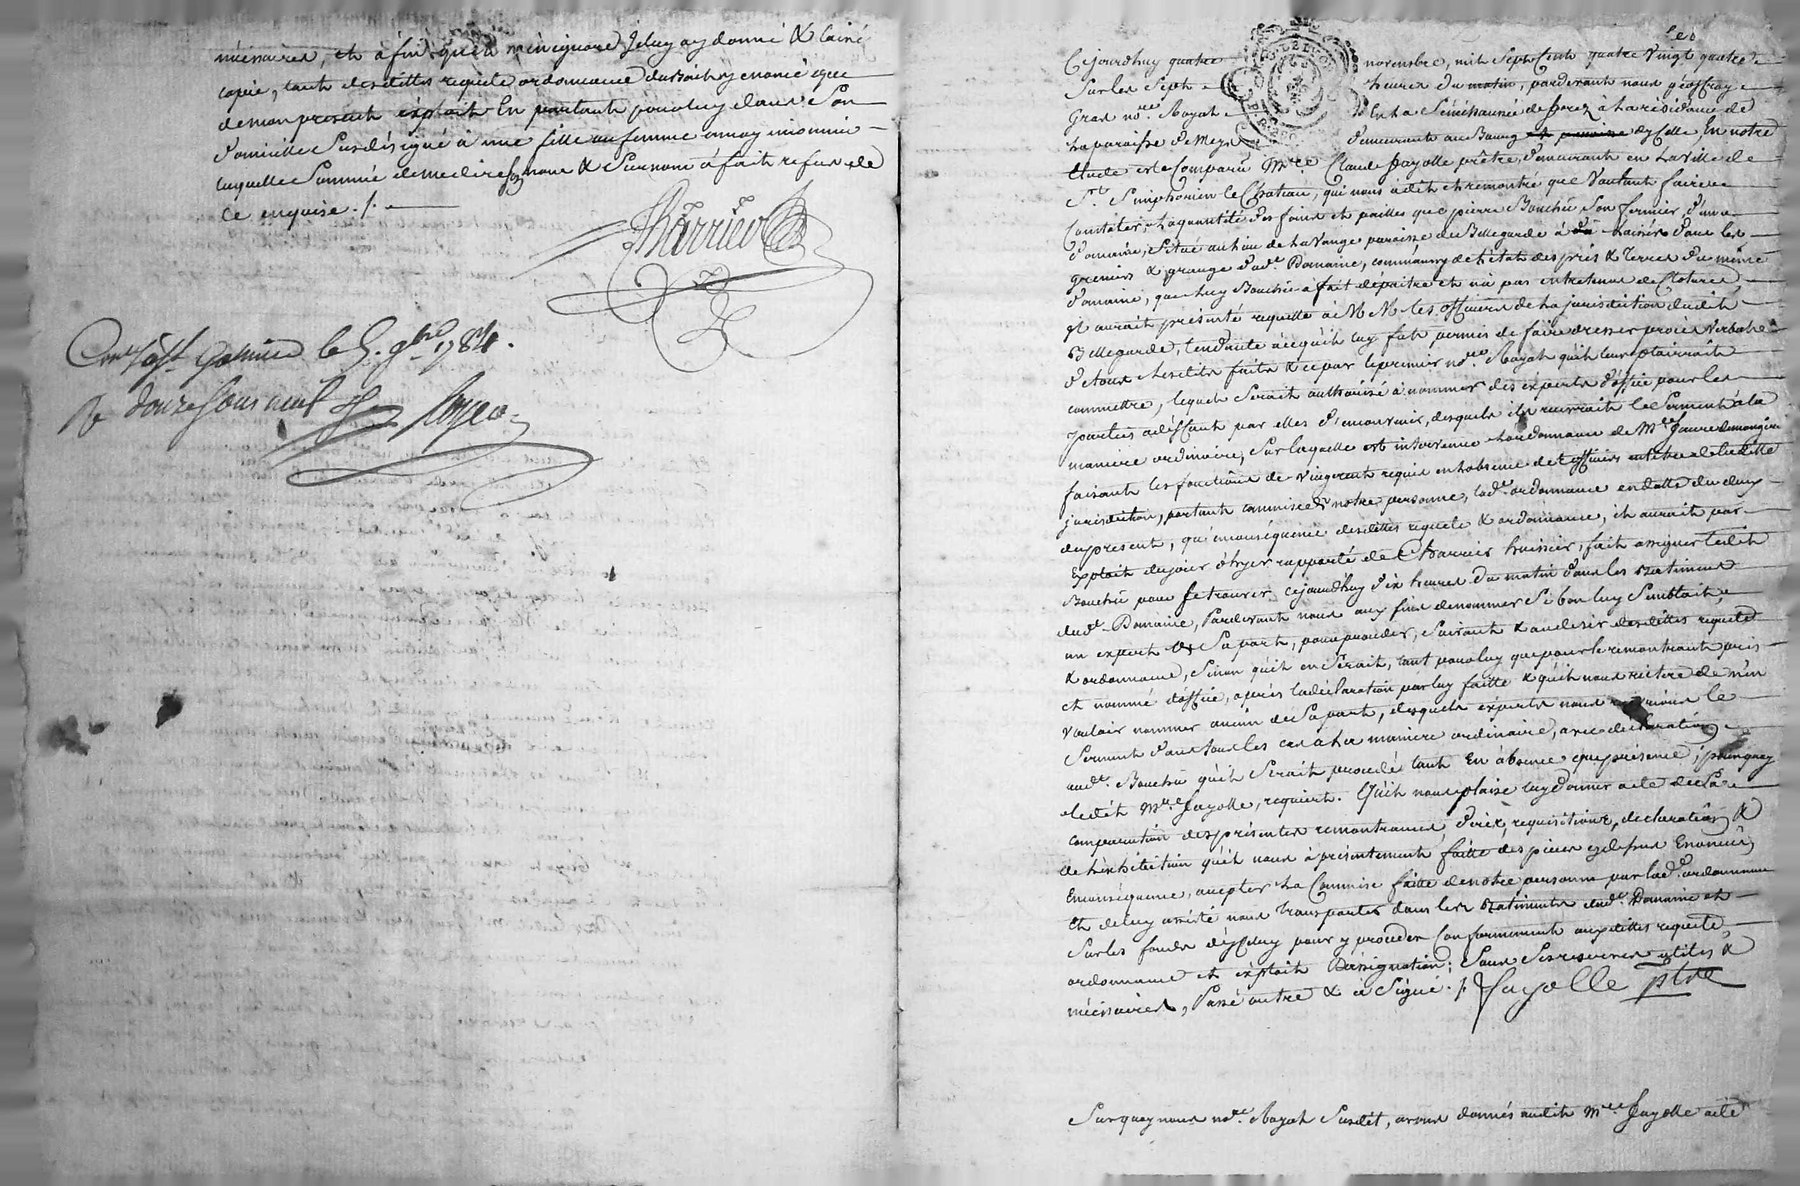 nécessaires, et à fin qu'il n'en ignore je luy ay donné & laissé
copie, tant desdittes requete ordonnance dudroit y enoncé que
de mon present exploit En parlant pour luy dans son
domicille susdésigné à une fille ou femme a moy inconnüe
laquelle sommée de me dire son nom & surnom à fait refus de
ce enquise ./.
Charrier
Con. à St Galmier le 5. 9bre 1784.
R douze sous neuf
Cejourdhuy quatre novembre, mil sept cents quatre vingt quatre
sur les sept heures du matin, pardevant nous géoffray
Gras no.re Royah En La sénéchaussée de forez à la résidance de
La paroisse de Meys demeurants au Bourg dycelle En notre
étude est comparu M.re Claude fayolle prêtre, demeurant en la ville de
S.t Simphorien le Chateau, qui nous a dit et remontré que voulant faire
constater la quantité des foins et pailles que pierre Bouchu son fermier d'un
domaine, situé au lieu de la vange paroisse de Bellegarde à laissés dans les
greniers & grange dud.t Domaine, comme aussy de l'état des prés & terres du même
domaine, que luy Bouchu a fait dépaitre et n'a pas entretenus de cloture,
et aurait présenté requette à M M. les officiers de la jurisdiction dudit
Bellegarde, tendante à ce qu'il luy fut permis de faire dresser procès verbal
de tous lesdits faits & ce par le premier no.re Royah qu'il leur plairroit
commettre, lequel serait authorisé à nommer des experts d'office pour les
parties à déffaut par elles d'en convenir, desquels il recevrait le serment à la
maniere ordinaire, sur laquelle est intervenue l'ordonnance de M.e
faisant les fonctions de vingerent requis en l'absence des officiers en titre de laditte
jurisdiction, portant commission notre personne, lad.e ordonnance en datte du deux
du present, qu'en conséquence desdittes requete & ordonnance, il aurait par
Exploit du jour d'hyer rapporté de Charrier huissier, fait assigner ledit
Bouchu pour se trouver cejourdhuy dix heures du matin dans les batiments
dud.t Domaine, pardevant nous aux fins de nommer si bon luy semblait,
un expert de sa part, pour proceder, suivant & au desir desdittes requete
& ordonnance, sinon qu'il en serait, tant pour luy que pour le remontrant pris
et nommé d'office, apres la déclaration par luy faitte & qu'il nous reitere de n'en
vouloir nommer aucun de sa part, desquels experts nous recevrions le
serment dans tous les cas a la maniere ordinaire, avec declaration
aud.t Bouchu qu'il serait procedé tant En absence que présence, pourquoy
ledit M.re fayolle, requiert. Qu'il nous plaise luy donner acte de sa
comparution des présentes remontrances, dires, requisitions, declarations &
de l'exhibition qu'il nous à présentement faitte des pieces cydessus Enoncées
En conséquence, accepter la Commise faitte de notre personne par lad.e ordonnance
Et de luy assisté nous transporter dans les batiments dud.t Domaine et
sur les fonds d'yceluy pour y proceder Conformement auxdittes requete,
ordonnance et exploit d'assignation; sous ses reserves utiles &
nécessaires, passé outre & a signé ./. fayolle ptre
Sur quoy nous no.re Royah susdit, avons donnés audit M.re fayolle acte